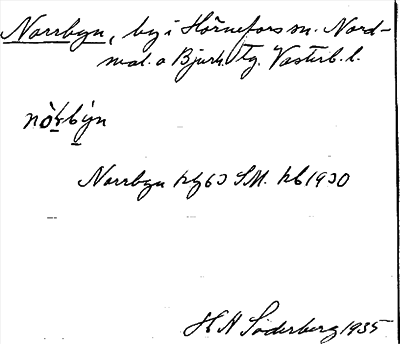 Norrbyn, by i Hörnefors sn. Nord-
mal. o Bjurh. tg. Västerb. l.
nòrbýn
Norrbyn hg 63 SM. kb 1930
H A Söderberg 1935